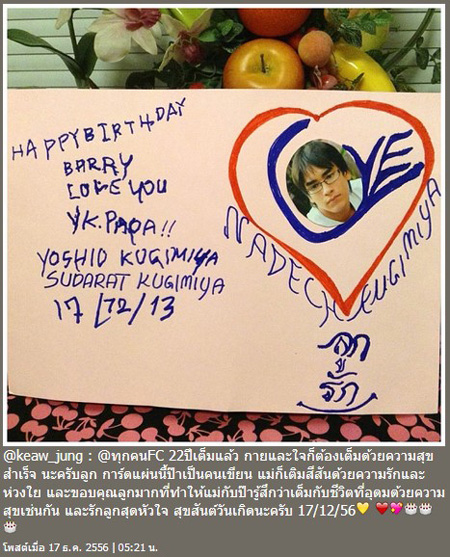 HAPPY BIRTHDAY
BARRY
LOVE YOU
YK. PAPA!!
YOSHIO KUGIMIYA
SUDARAT KUGIMIYA
17/12/13
LOVE
NADECH KUGIMIYA
ลูก
รัก
@keaw_jung : @ทุกคนFC 22ปีเต็มแล้ว กายและใจก็ต้องเต็มด้วยความสุข
สำเร็จ นะครับลูก การ์ดแผ่นนี้ป๊าเป็นคนเขียน แม่ก็เติมสีสันด้วยความรักและ
ห่วงใย และขอบคุณลูกมากที่ทำให้แม่กับป๊ารู้สึกว่าเต็มกับชีวิตที่อุดมด้วยความ
สุขเช่นกัน และรักลูกสุดหัวใจ สุขสันต์วันเกิดนะครับ 17/12/56💛 ❤️💖🎂🎂
🎂
โพสต์เมื่อ 17 ธ.ค. 2556 | 05:21 น.